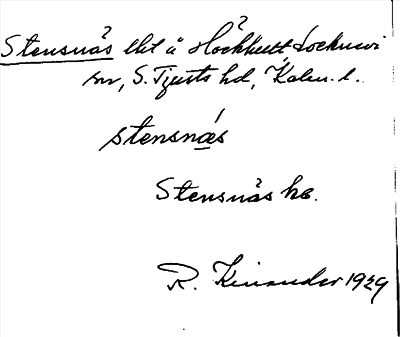 Stensnäs ebt å Hökhult Locknevi
sn, S. Tjusts hd, Kalm. l.
stensnæs
Stensnäs hs.
R. Kinander 1929